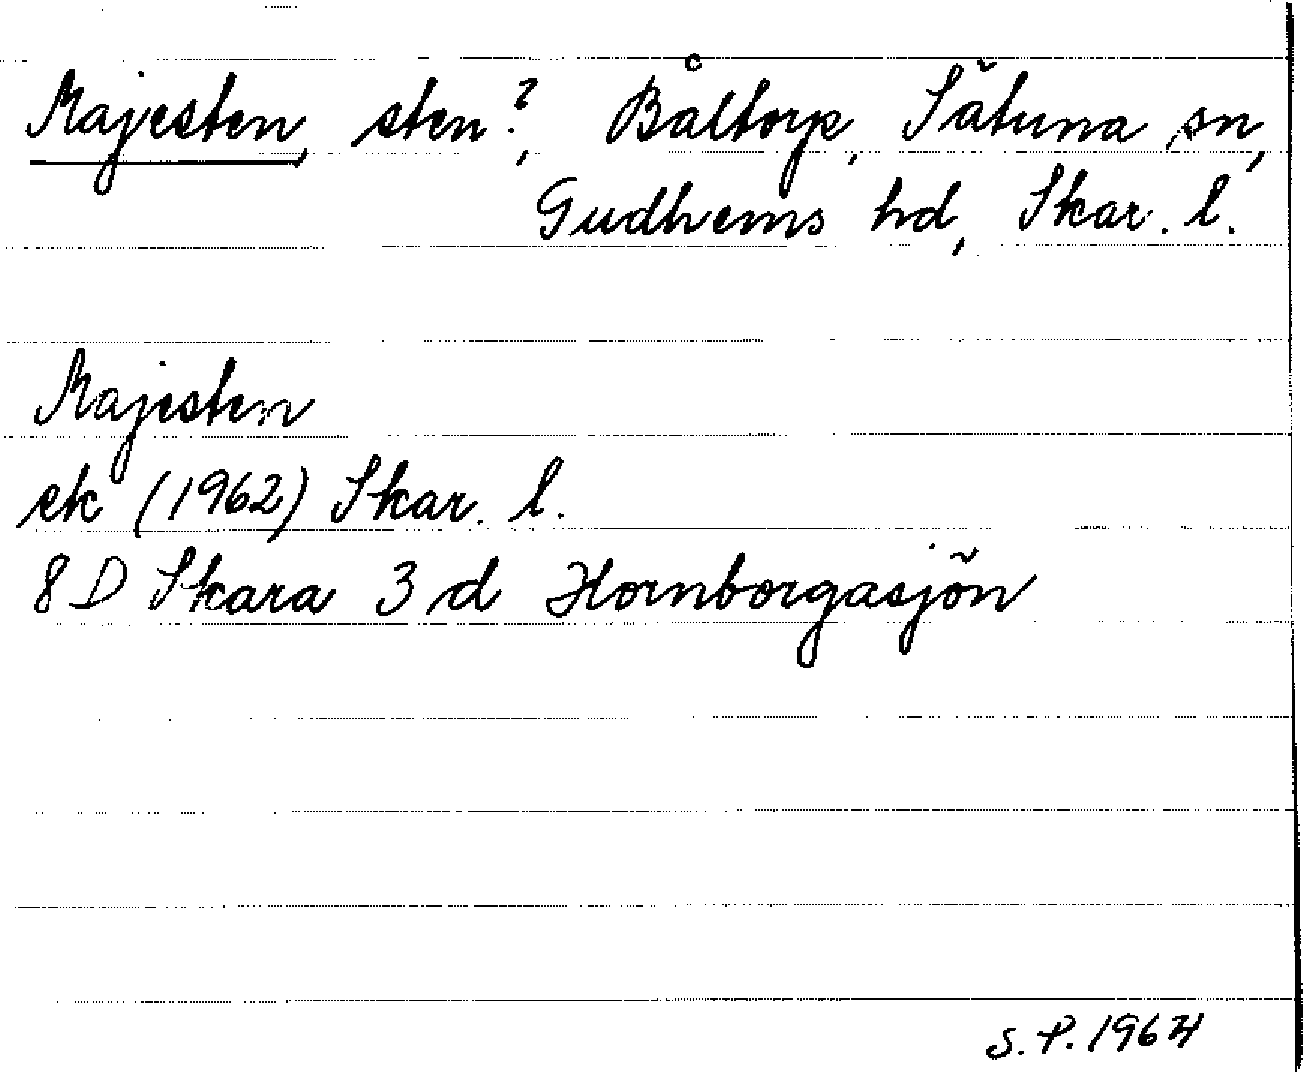 Majesten, sten?, Båltorp, Sätuna sn,
Gudhems hd, Skar. l.
Majesten
ek (1962) Skar. l.
8D Skara 3 d Hornborgasjön
S.P. 1964